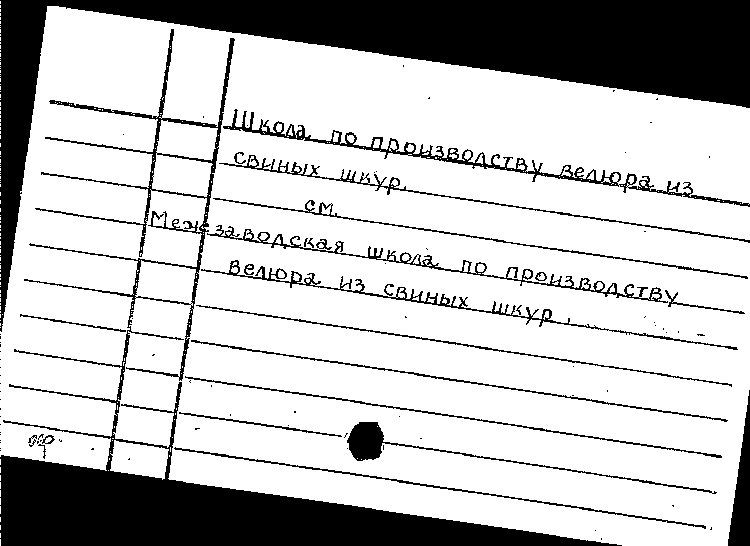 Школа по производству велюра из
свиных шкур.
см.
Межзаводская школа по производству
велюра из свиных шкур.